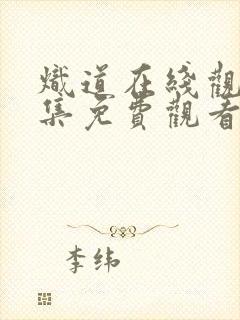 熾道在綫觀
集免費觀看
李纬